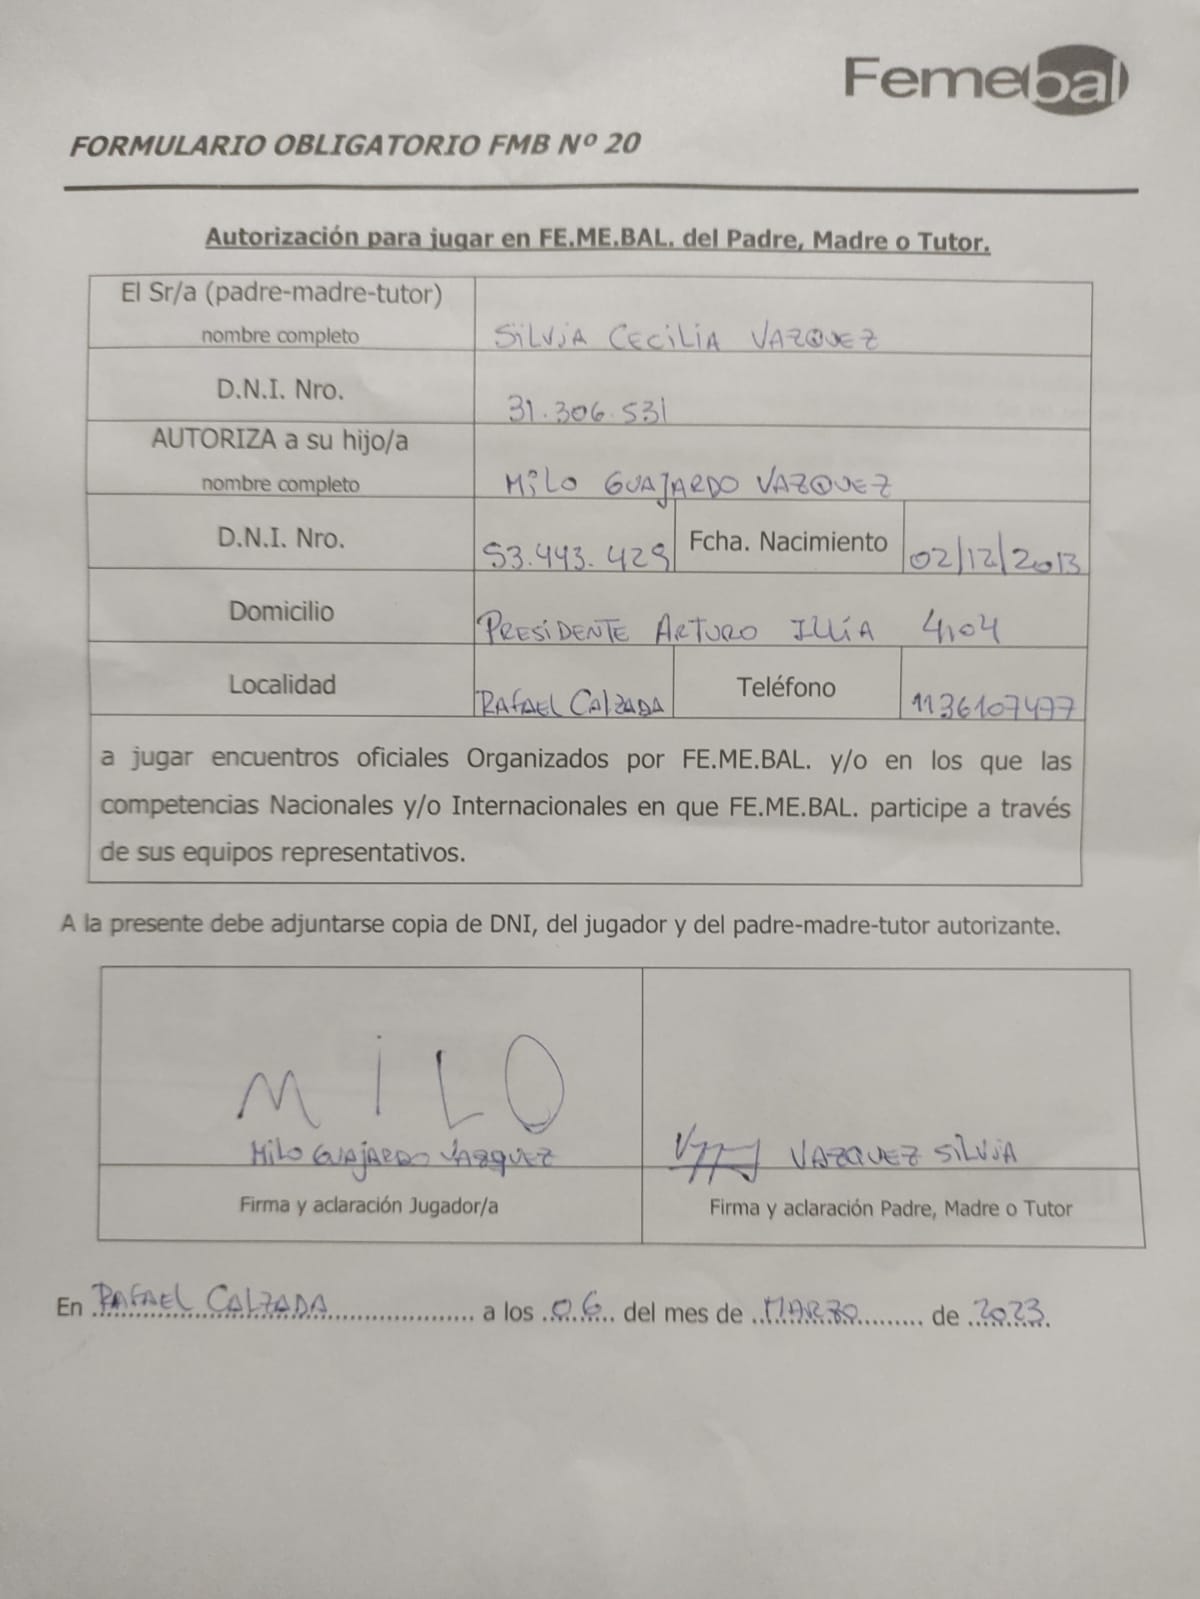 Femebal
FORMULARIO OBLIGATORIO FMB Nº 20
Autorización para jugar en FE.ME.BAL. del Padre, Madre o Tutor.
El Sr/a (padre-madre-tutor)
nombre completo
SILVIA CECILIA VAZQUEZ
D.N.I. Nro.
31.306.531
AUTORIZA a su hijo/a
nombre completo
MILO GUAJARDO VAZQUEZ
D.N.I. Nro.
53.443.429
Fcha. Nacimiento
02/12/2013
Domicilio
PRESIDENTE ARTURO ILLIA 4104
Localidad
RAFAEL CALZADA
Teléfono
1136107477
a jugar encuentros oficiales Organizados por FE.ME.BAL. y/o en los que las
competencias Nacionales y/o Internacionales en que FE.ME.BAL. participe a través
de sus equipos representativos.
A la presente debe adjuntarse copia de DNI, del jugador y del padre-madre-tutor autorizante.
MILO
MILO GUAJARDO VAZQUEZ
VAZQUEZ SILVIA
Firma y aclaración Jugador/a
Firma y aclaración Padre, Madre o Tutor
En RAFAEL CALZADA a los 06 del mes de MARZO de 2023.